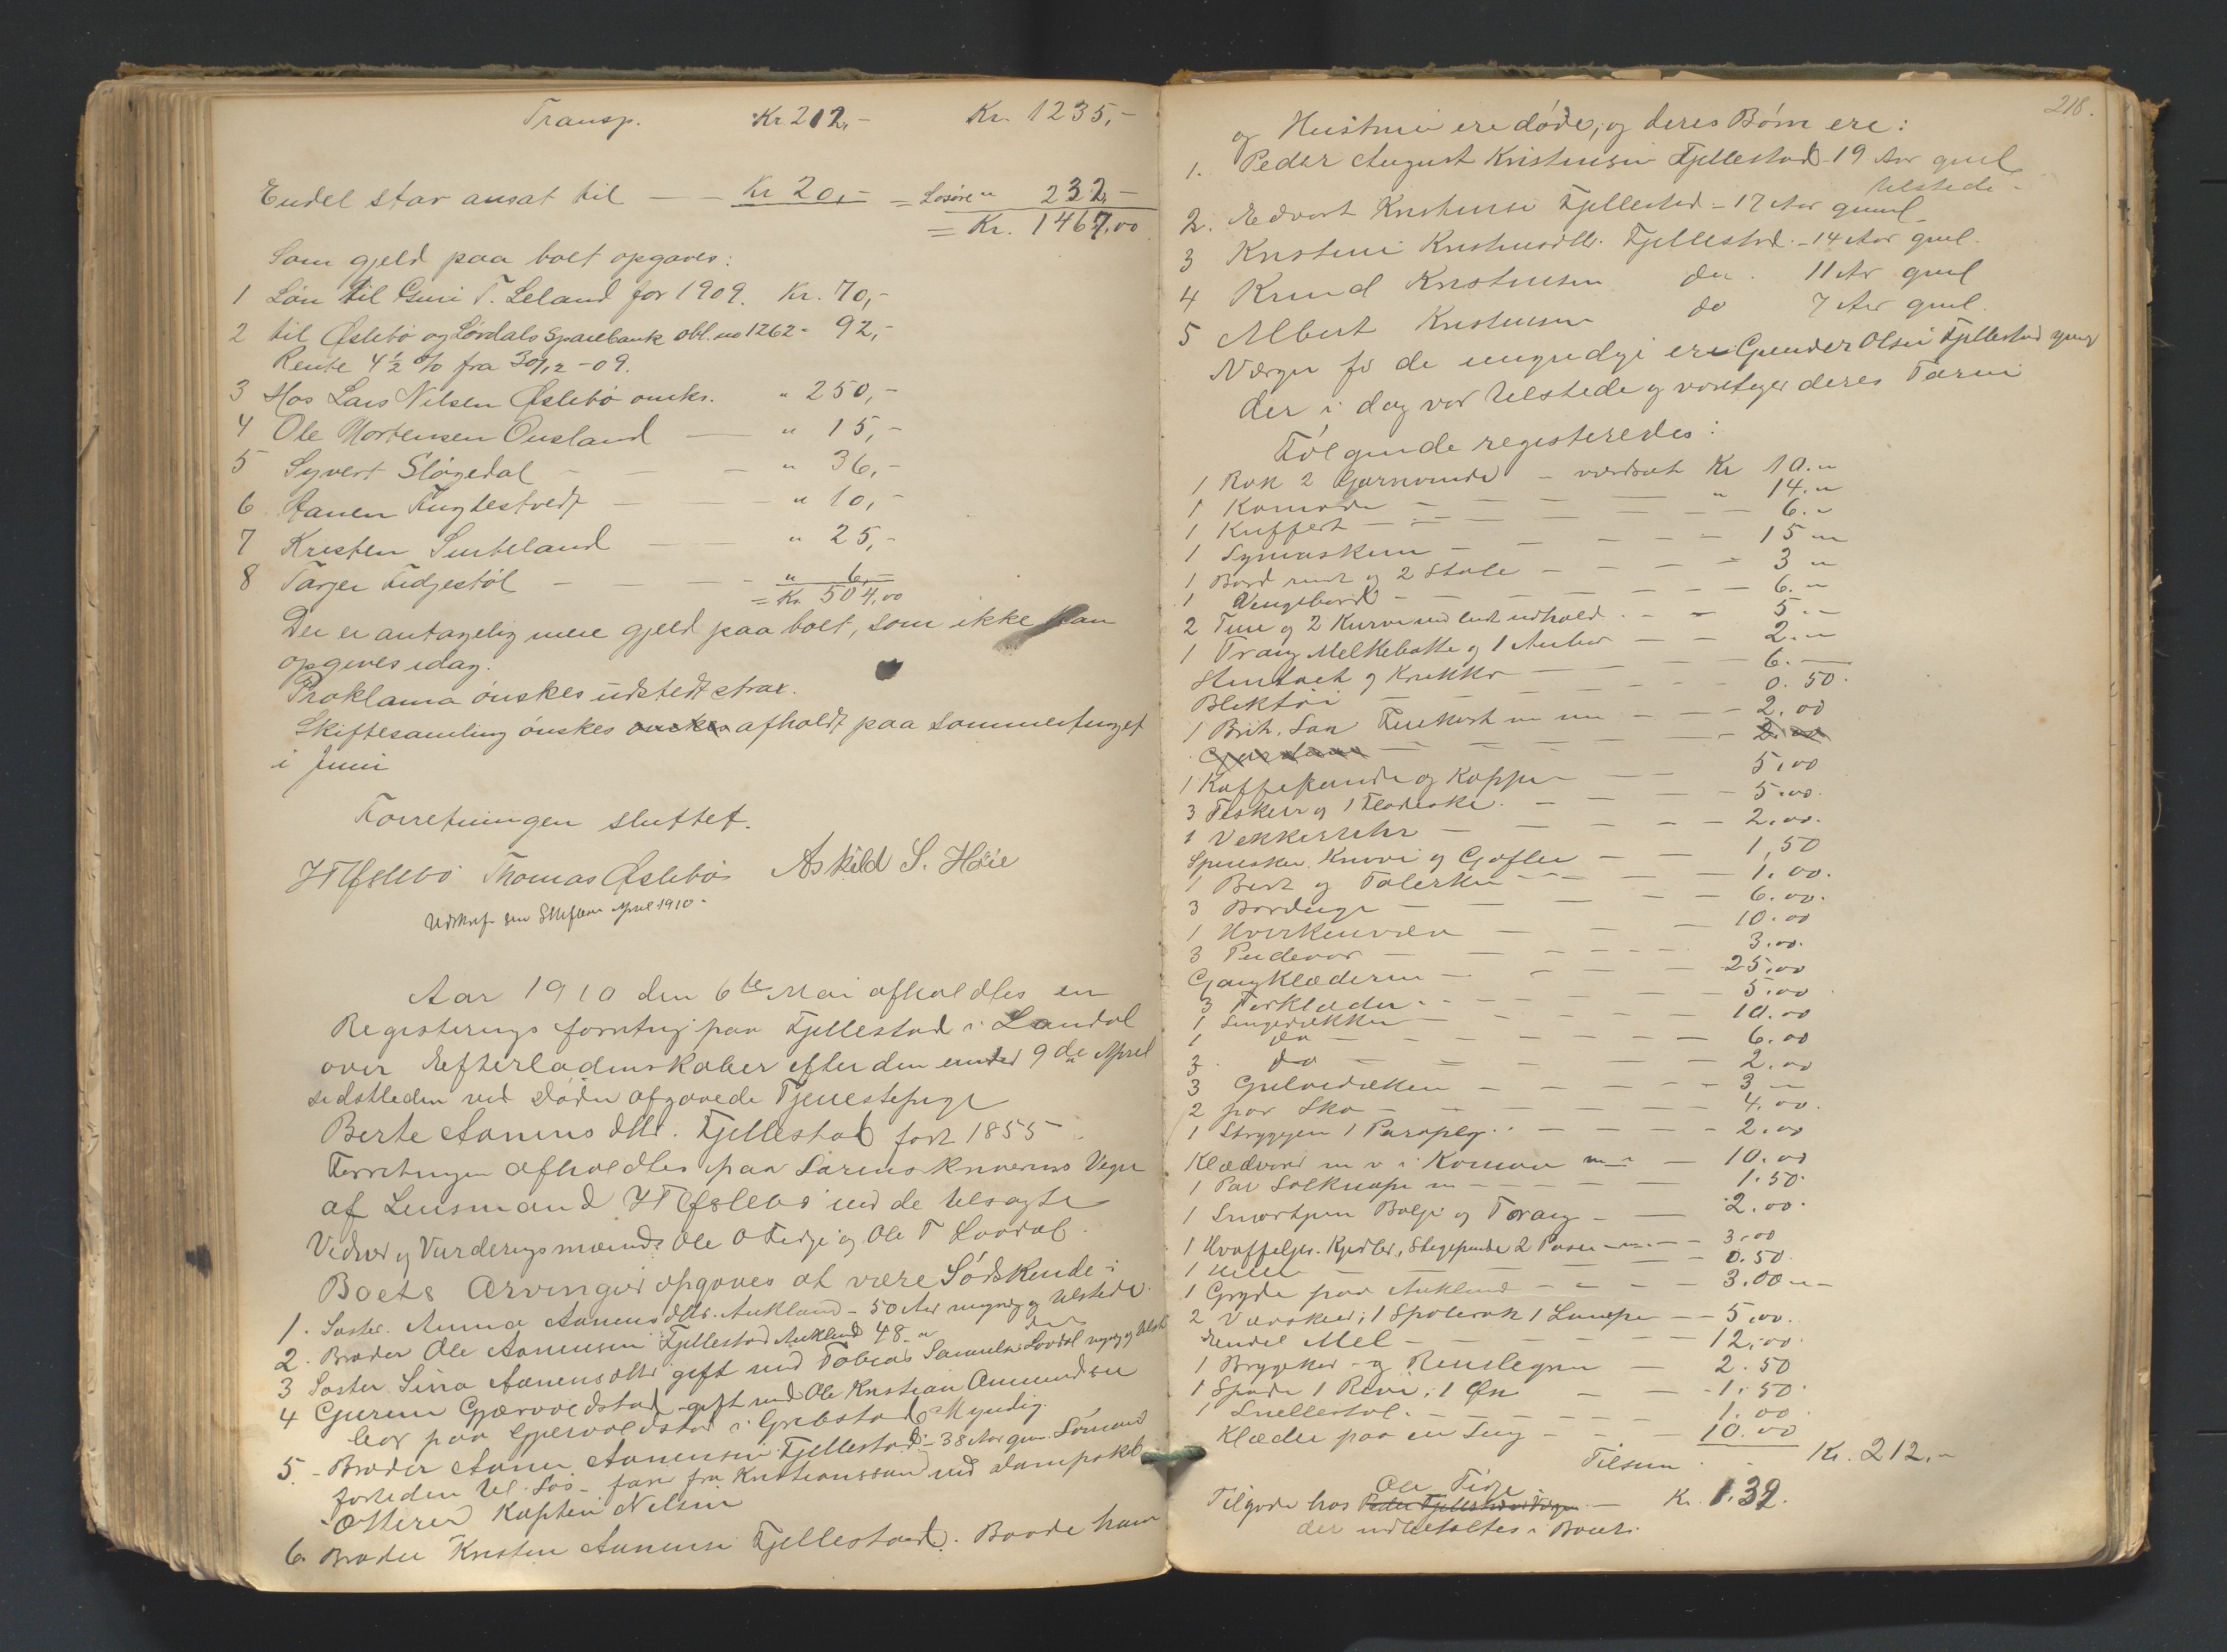 Transp. Kr 212,- Kr. 1235,-
Endel star ansat til — - Kr 20,- = Løsøre " 232,-
= Kr. 1467.00
Som gjeld paa boet opgaves:
1 Løn til Guri T. Leland for 1909. Kr. 70,-
2 til Øslebø og Løvdals Sparebank obl. no 1262 - 92,-
Rente 4½ % fra 30/12 -09.
3 Hos Lars Nilsen Øslebø omkr. " 250,-
4 Ole Mortensen Ousland — " 15,-
5 Syvert Sløgedal - - - " 36,-
6 Aanen Fuglestvedt - - - " 10,-
7 Kristen — — " 25,-
8 Tarjer Fidjestøl - - - - " 6,-
= Kr. 504,00
Der er antagelig mere gjeld paa boet, som ikke kan
opgives idag.
Proklama ønskes udstedt strax.
Skiftesamling ønskes afholdt paa sommertinget
i Juni
Forretningen sluttet.
HTØslebø Thomas Øslebø Askild S. Høie
Udskrift April 1910 -
Aar 1910 den 6te Mai afholdtes en
Registerings forretng paa Fjellestad i Laudal
over Efterladenskaber efter den under 9de April
sidstleden ved Døden afgaaede Tjenestepige
Berte Aanensdtr. Fjellestad født 1855 -
Forretningen afholdtes paa Sorenskriverens Vegne
af Lensmand HTØslebø med de tilsagte
Vidner og Vurderingsmænd Ole O Fidje og Ole T Lovdal.
Boets Arvinger opgaves at være Sødskende:
1. Søster. Anna Aanensdtr. Aukland - 50 Aar myndig og tilstede.
2. Broder Ole Aanensen Fjellestad Aukland 48 - "
3 Søster Sina Aanensdtr gift med Tobias Samuelsen Lovdal myndig og tilst
4 Gurine Gjervoldstad - gift med Ole Kristian Aanundsen
bor paa Gjervoldstad i Grebstad - Myndig.
5. - Broder Aanen Aanensen Fjellestad - 38 Aar gm. Sømand
for tiden til Søs - farer fra Kristianssand med Dampskib
"Otteren" Kaptein Nilsen
6. Broder Kristen Aanensen Fjellestad. Baade han
218.
og Hustruen ere døde, og deres Børn ere:
1. Peder August Kristensen Fjellestad - 19 Aar gml
tilstede -
2. Edvart Kristensen Fjellestad - 17 Aar gamml -
3 Kristine Kristensdtr. Fjellestad. - 14 Aar gml.
4 Knud Kristensen do. 11 Ar gml
5 Albert Kristensen do 7 Aar gml.
Værge for de umyndige ere Gunder Olsen Fjellestad
der i dag var tilstede og varetager deres Tarv
Følgende registeredes:
1 Rok 2 Garnvinde - værdsat Kr 10."
1 Komode - - - - - " 14."
1 Kuffert - - - - - 6."
1 Symaskin - - - - - 15 "
1 Bord rundt og 2 Stole - - - - 3 "
1 Vengebord - - - - - 6."
2 Tine og 2 Kurve med lidt indhold. - - 5.-
1 Traug Melkebøtte og 1 Anker - - 2."
Stentøet og Krukke - - - - 6.—
Bliktøi - - - - 0.50.
1 - - - 2.00
1 Kaffekande og Kopper - - 5,00
3 Teskeer og 1 Flødeske. - - - - 5.00.
1 Vekkeruhr - - - - - 2.00.
Spiseskeer Knive og Gafler - - 1,50
1 Bret og Talerken - - - 1.00.
3 Borduge - - - - - 6.00.
1 - - - 10.00
3 Pudevar - - - - 3.00.
Gangklæderne - - - - 25,00
3 Forklæder. - - - - - 5.00
1 Sengedækken - - - - 10.00
1 do - - - - - 6.00
3 do - - - - - 2.00
3 Gulvedækken - - - - - 3 —
2 par Sko - - - - - 4.00.
1 Strygejern 1 Paraply. - - - - 2.00
Klædevarer m v i Komoden - 10.00
1 Par Sølknape - - - - 1.50.
1 Balje og Traug - - 2.00.
1 Vaffeljer. Kjedler, Stegepande 2 - 3.00
1 - - - 0.50.
1 Gryde paa Aukland - - - - 3.00 -
2 Vævskeer, 1 Spolerok 1 Lampe - - 5.00.
Endel Mel - - - - - 12,00.
1 Bryggekar og - 2.50
1 Spade 1 Rive, 1 Øx - - - 1.50.
1 Snellestol. - - - - - 1.00
Klæder paa en Seng - - - 10.00
Tilsam . - Kr. 212.-
Ole Fidje
Tilgode hos - Kr. 132.
der udbetaltes i Boet.